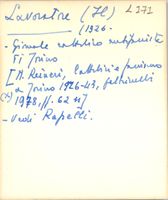 Lavoratore (Il) L271
(1926-
- Giornale cattolico antifascista
di Torino
[M. Reineri, Cattolici e fascismo
a Torino 1926-43, Feltrinelli
1978, p. 62 n]
- Vedi Rapelli.